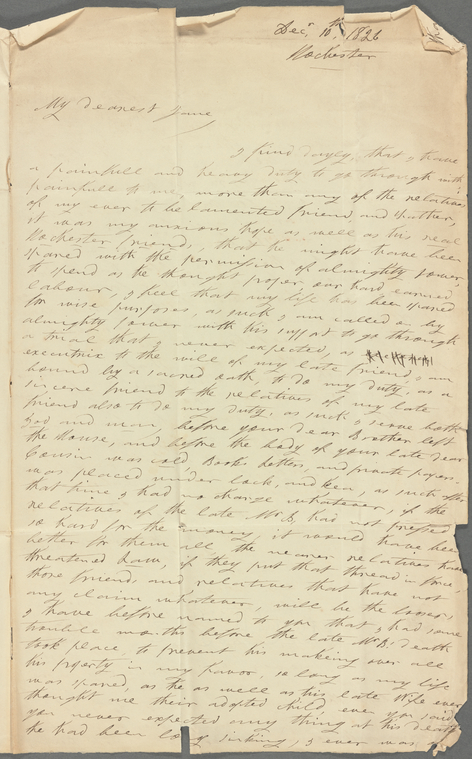 Dec.r 10th 1826
Rochester
My dearest Jane,
I find dayly, that I have
a painfull and heavy duty to go through with
painfull to me, more than any of the relatives
of my ever to be lamented friend and Brother,
it was my anxious hope as well as his real
Rochester friends, that he might have been
spared with the permission of almighty power,
to spend as he thought proper, our hard earned
labour, I feel that my life has been spared
for wise purposes, as such I am called on, by
almighty power with his support to go through
a trial that I never expected, as
executrix to the will of my late friend, I am
bound by a sacred oath, to do my duty, as a
sincere friend to the relatives of my late
friend also to do my duty, as such I serve both
God and man, before your dear Brother left
the House, and before the body of your late dear
Cousin was cold Books letters, and private papers.
was placed under lock, and key, as such after
that time I had no charge whatever, if the
relatives of the late Mr B. had not pressed
so hard for the money, it would have been
better for them all the nearer relatives have
threatened law, if they put that thread in force,
those friends and relatives that have not
any claim whatever, will be the losers,
I have before named to you that I had some
trouble months before the late Mr B. death
took place, to prevent his making over all
his property in my favor, so long as my life
was spared, as he as well as his late Wife ever
thought me their adopted child, ever you said
you never expected any thing at his death
he had been long sinking, I ever was